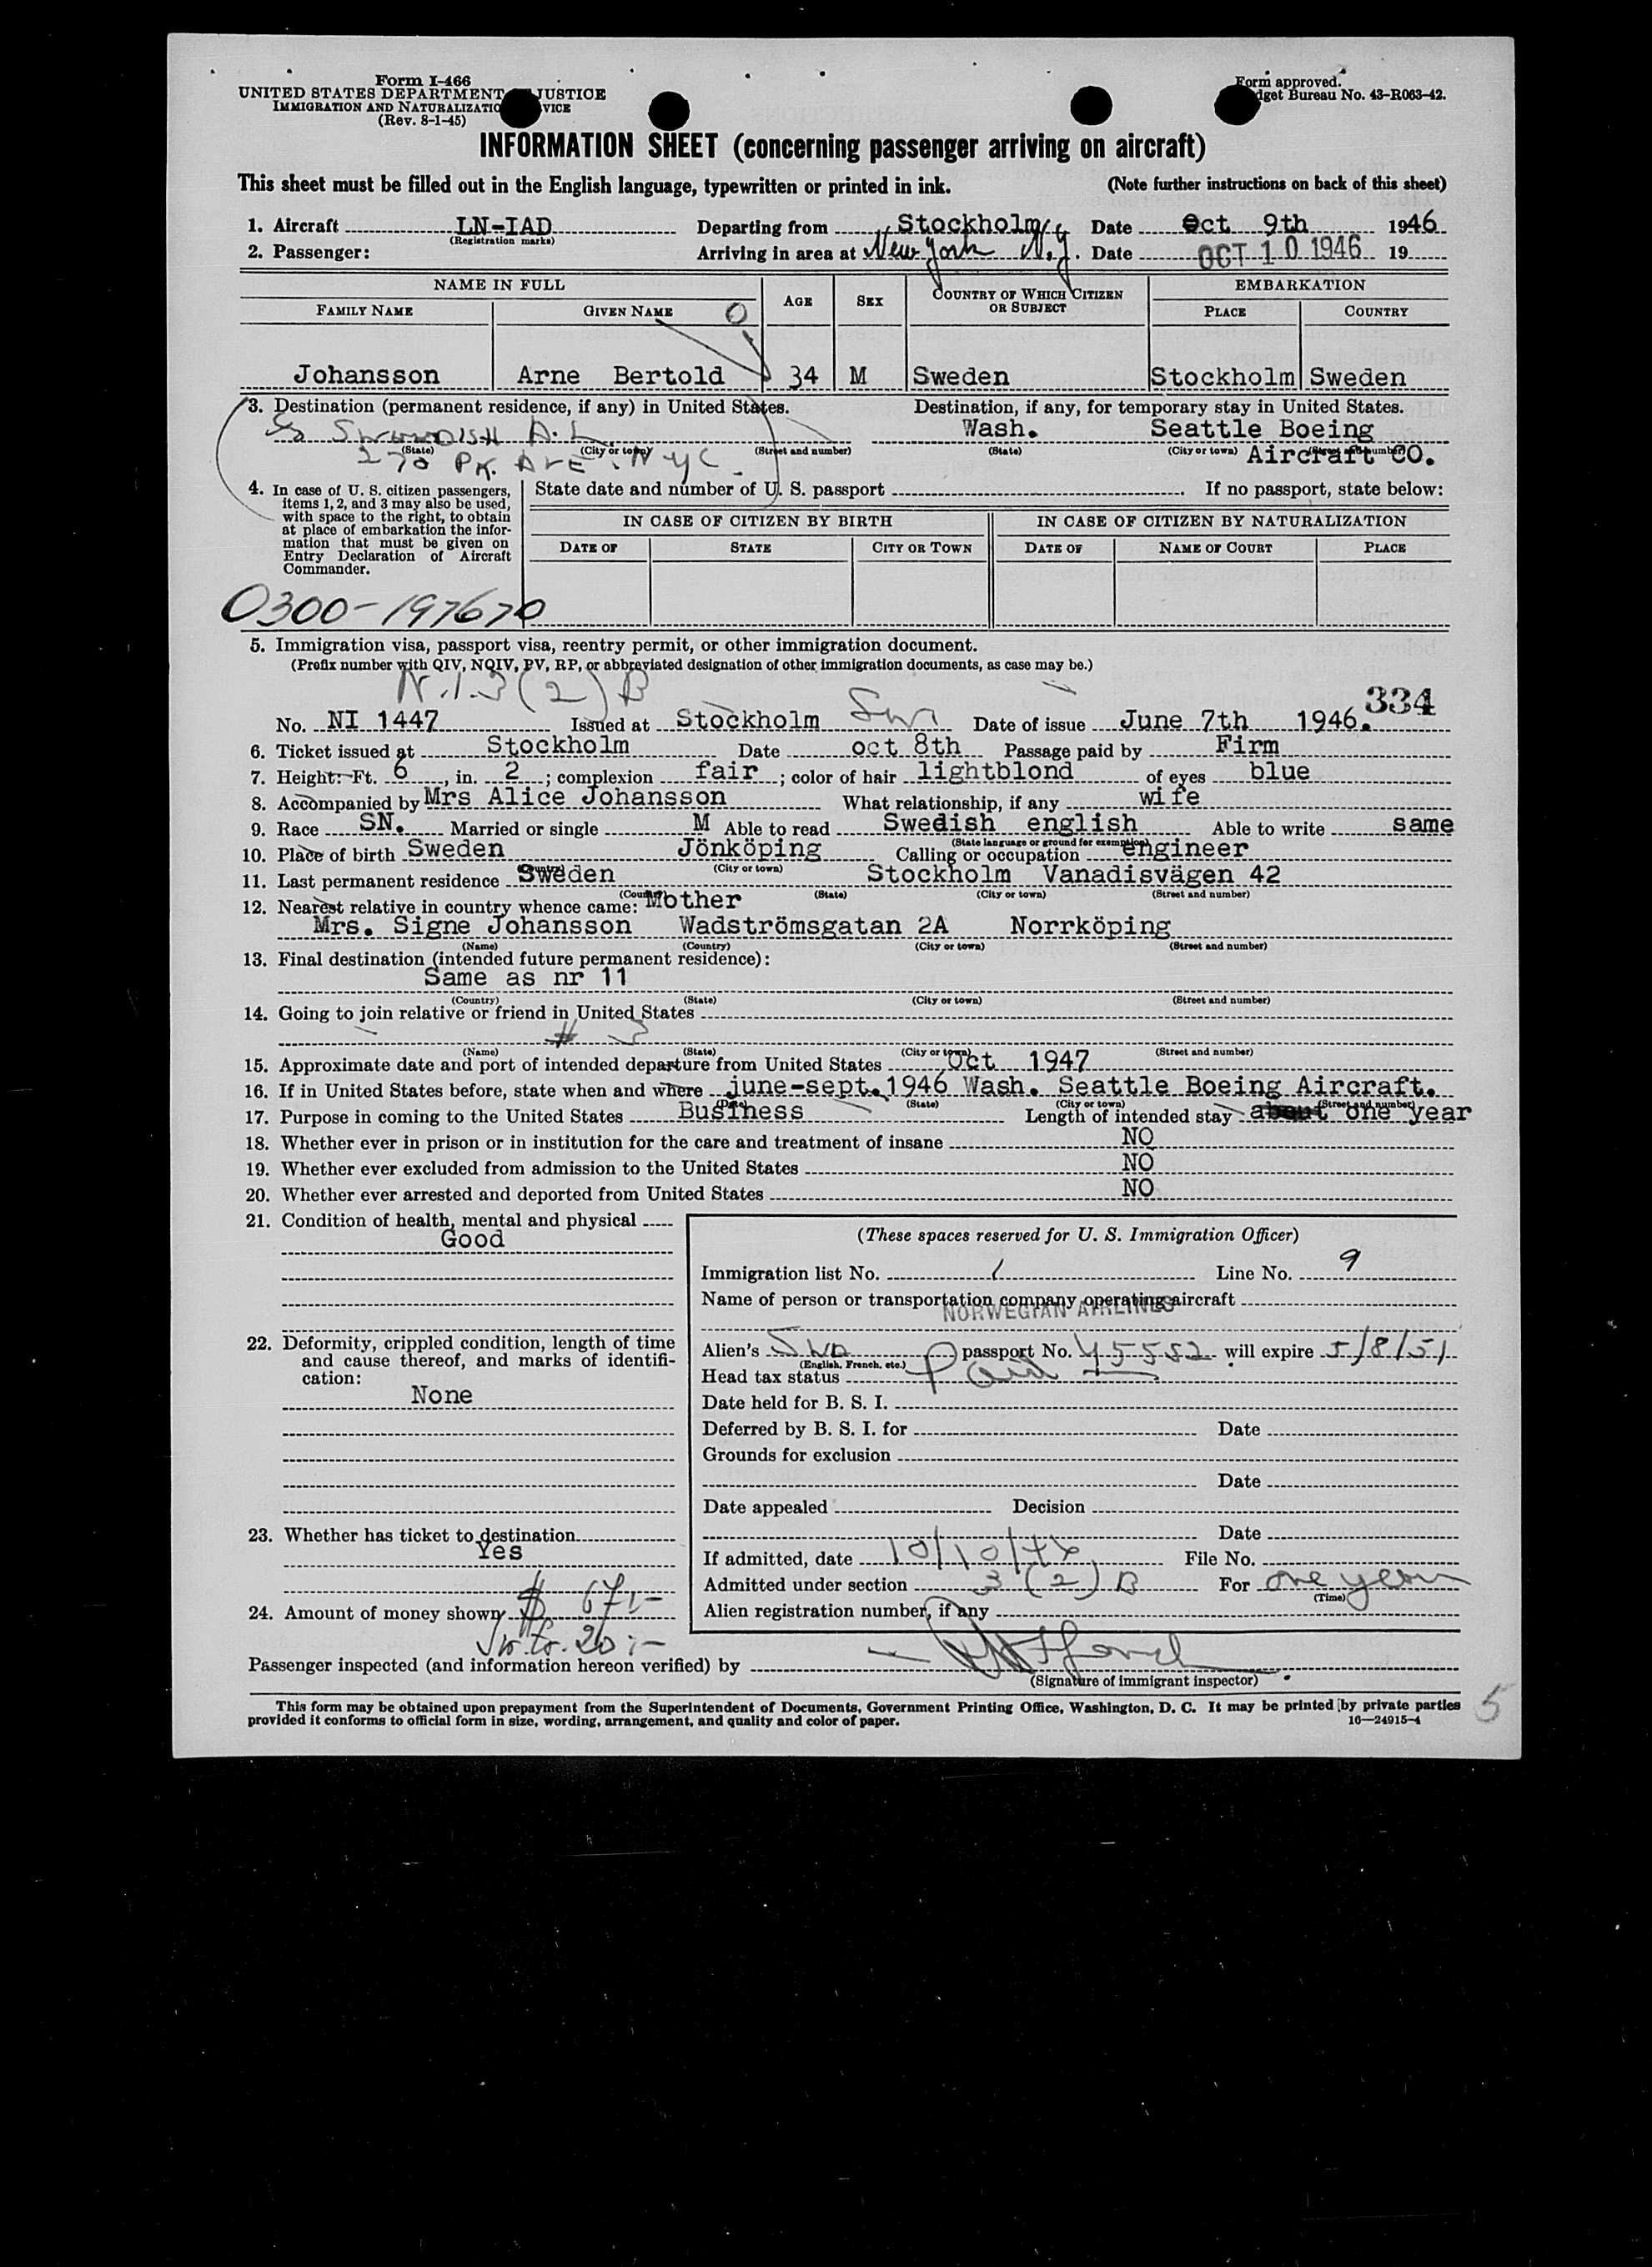 Form I-466
UNITED STATES DEPARTMENT JUSTICE
IMMIGRATION AND NATURALIZATIO VICE
(Rev. 8-1-45)
Form approved.
dget Bureau No. 43-R063-42.
INFORMATION SHEET (concerning passenger arriving on aircraft)
This sheet must be filled out in the English language, typewritten or printed in ink. (Note further instructions on back of this sheet)
1. Aircraft LN-IAD Departing from Stockholm Date Oct 9th 1946
(Registration marks)
2. Passenger: Arriving in area at New York N.Y. Date OCT 10 1946 19
NAME IN FULL AGE SEX COUNTRY OF WHICH CITIZEN OR SUBJECT EMBARKATION
FAMILY NAME GIVEN NAME PLACE COUNTRY
Johansson Arne Bertold 34 M Sweden Stockholm Sweden
3. Destination (permanent residence, if any) in United States. Destination, if any, for temporary stay in United States.
SWEDISH A.L. Wash. Seattle Boeing
(State) (City or town) (Street and number) (State) (City or town) (Street and number)
270 PK. AVE. NYC Aircraft CO.
4. In case of U. S. citizen passengers, items 1, 2, and 3 may also be used, with space to the right, to obtain at place of embarkation the information that must be given on Entry Declaration of Aircraft Commander.
State date and number of U. S. passport If no passport, state below:
IN CASE OF CITIZEN BY BIRTH IN CASE OF CITIZEN BY NATURALIZATION
DATE OF STATE CITY OR TOWN DATE OF NAME OF COURT PLACE
0300-197670
5. Immigration visa, passport visa, reentry permit, or other immigration document.
(Prefix number with QIV, NQIV, PV, RP, or abbreviated designation of other immigration documents, as case may be.)
N.I. 3(2)B
334
No. NI 1447 Issued at Stockholm Date of issue June 7th 1946.
6. Ticket issued at Stockholm Date oct 8th Passage paid by Firm
7. Height: Ft. 6, in. 2; complexion fair; color of hair lightblond of eyes blue
8. Accompanied by Mrs Alice Johansson What relationship, if any wife
9. Race SN. Married or single M Able to read Swedish english Able to write same
(State language or ground for exemption)
10. Place of birth Sweden Jönköping Calling or occupation engineer
(Country) (City or town)
11. Last permanent residence Sweden Stockholm Vanadisvägen 42
(Country) (State) (City or town) (Street and number)
12. Nearest relative in country whence came: Mother
Mrs. Signe Johansson Wadströmsgatan 2A Norrköping
(Name) (Country) (City or town) (Street and number)
13. Final destination (intended future permanent residence):
Same as nr 11
(Country) (State) (City or town) (Street and number)
14. Going to join relative or friend in United States
# 3
(Name) (State) (City or town) (Street and number)
15. Approximate date and port of intended departure from United States Oct 1947
16. If in United States before, state when and where june-sept. 1946 Wash. Seattle Boeing Aircraft.
(Date) (State) (City or town) (Street and number)
17. Purpose in coming to the United States Business Length of intended stay about one year
18. Whether ever in prison or in institution for the care and treatment of insane NO
19. Whether ever excluded from admission to the United States NO
20. Whether ever arrested and deported from United States NO
21. Condition of health, mental and physical
Good
22. Deformity, crippled condition, length of time and cause thereof, and marks of identification:
None
23. Whether has ticket to destination
Yes
24. Amount of money shown $ 67:-
20:-
(These spaces reserved for U. S. Immigration Officer)
Immigration list No. 1 Line No. 9
Name of person or transportation company operating aircraft
NORWEGIAN AIRLINES
Alien's SWD passport No. 45582 will expire 5/8/51
(English, French, etc.)
Head tax status Paid
Date held for B. S. I.
Deferred by B. S. I. for Date
Grounds for exclusion
Date
Date appealed Decision
Date
If admitted, date 10/10/46 File No.
Admitted under section 3(2)B For one year
(Time)
Alien registration number, if any
Passenger inspected (and information hereon verified) by
(Signature of immigrant inspector)
This form may be obtained upon prepayment from the Superintendent of Documents, Government Printing Office, Washington, D. C. It may be printed by private parties
provided it conforms to official form in size, wording, arrangement, and quality and color of paper. 16—24915-4
5